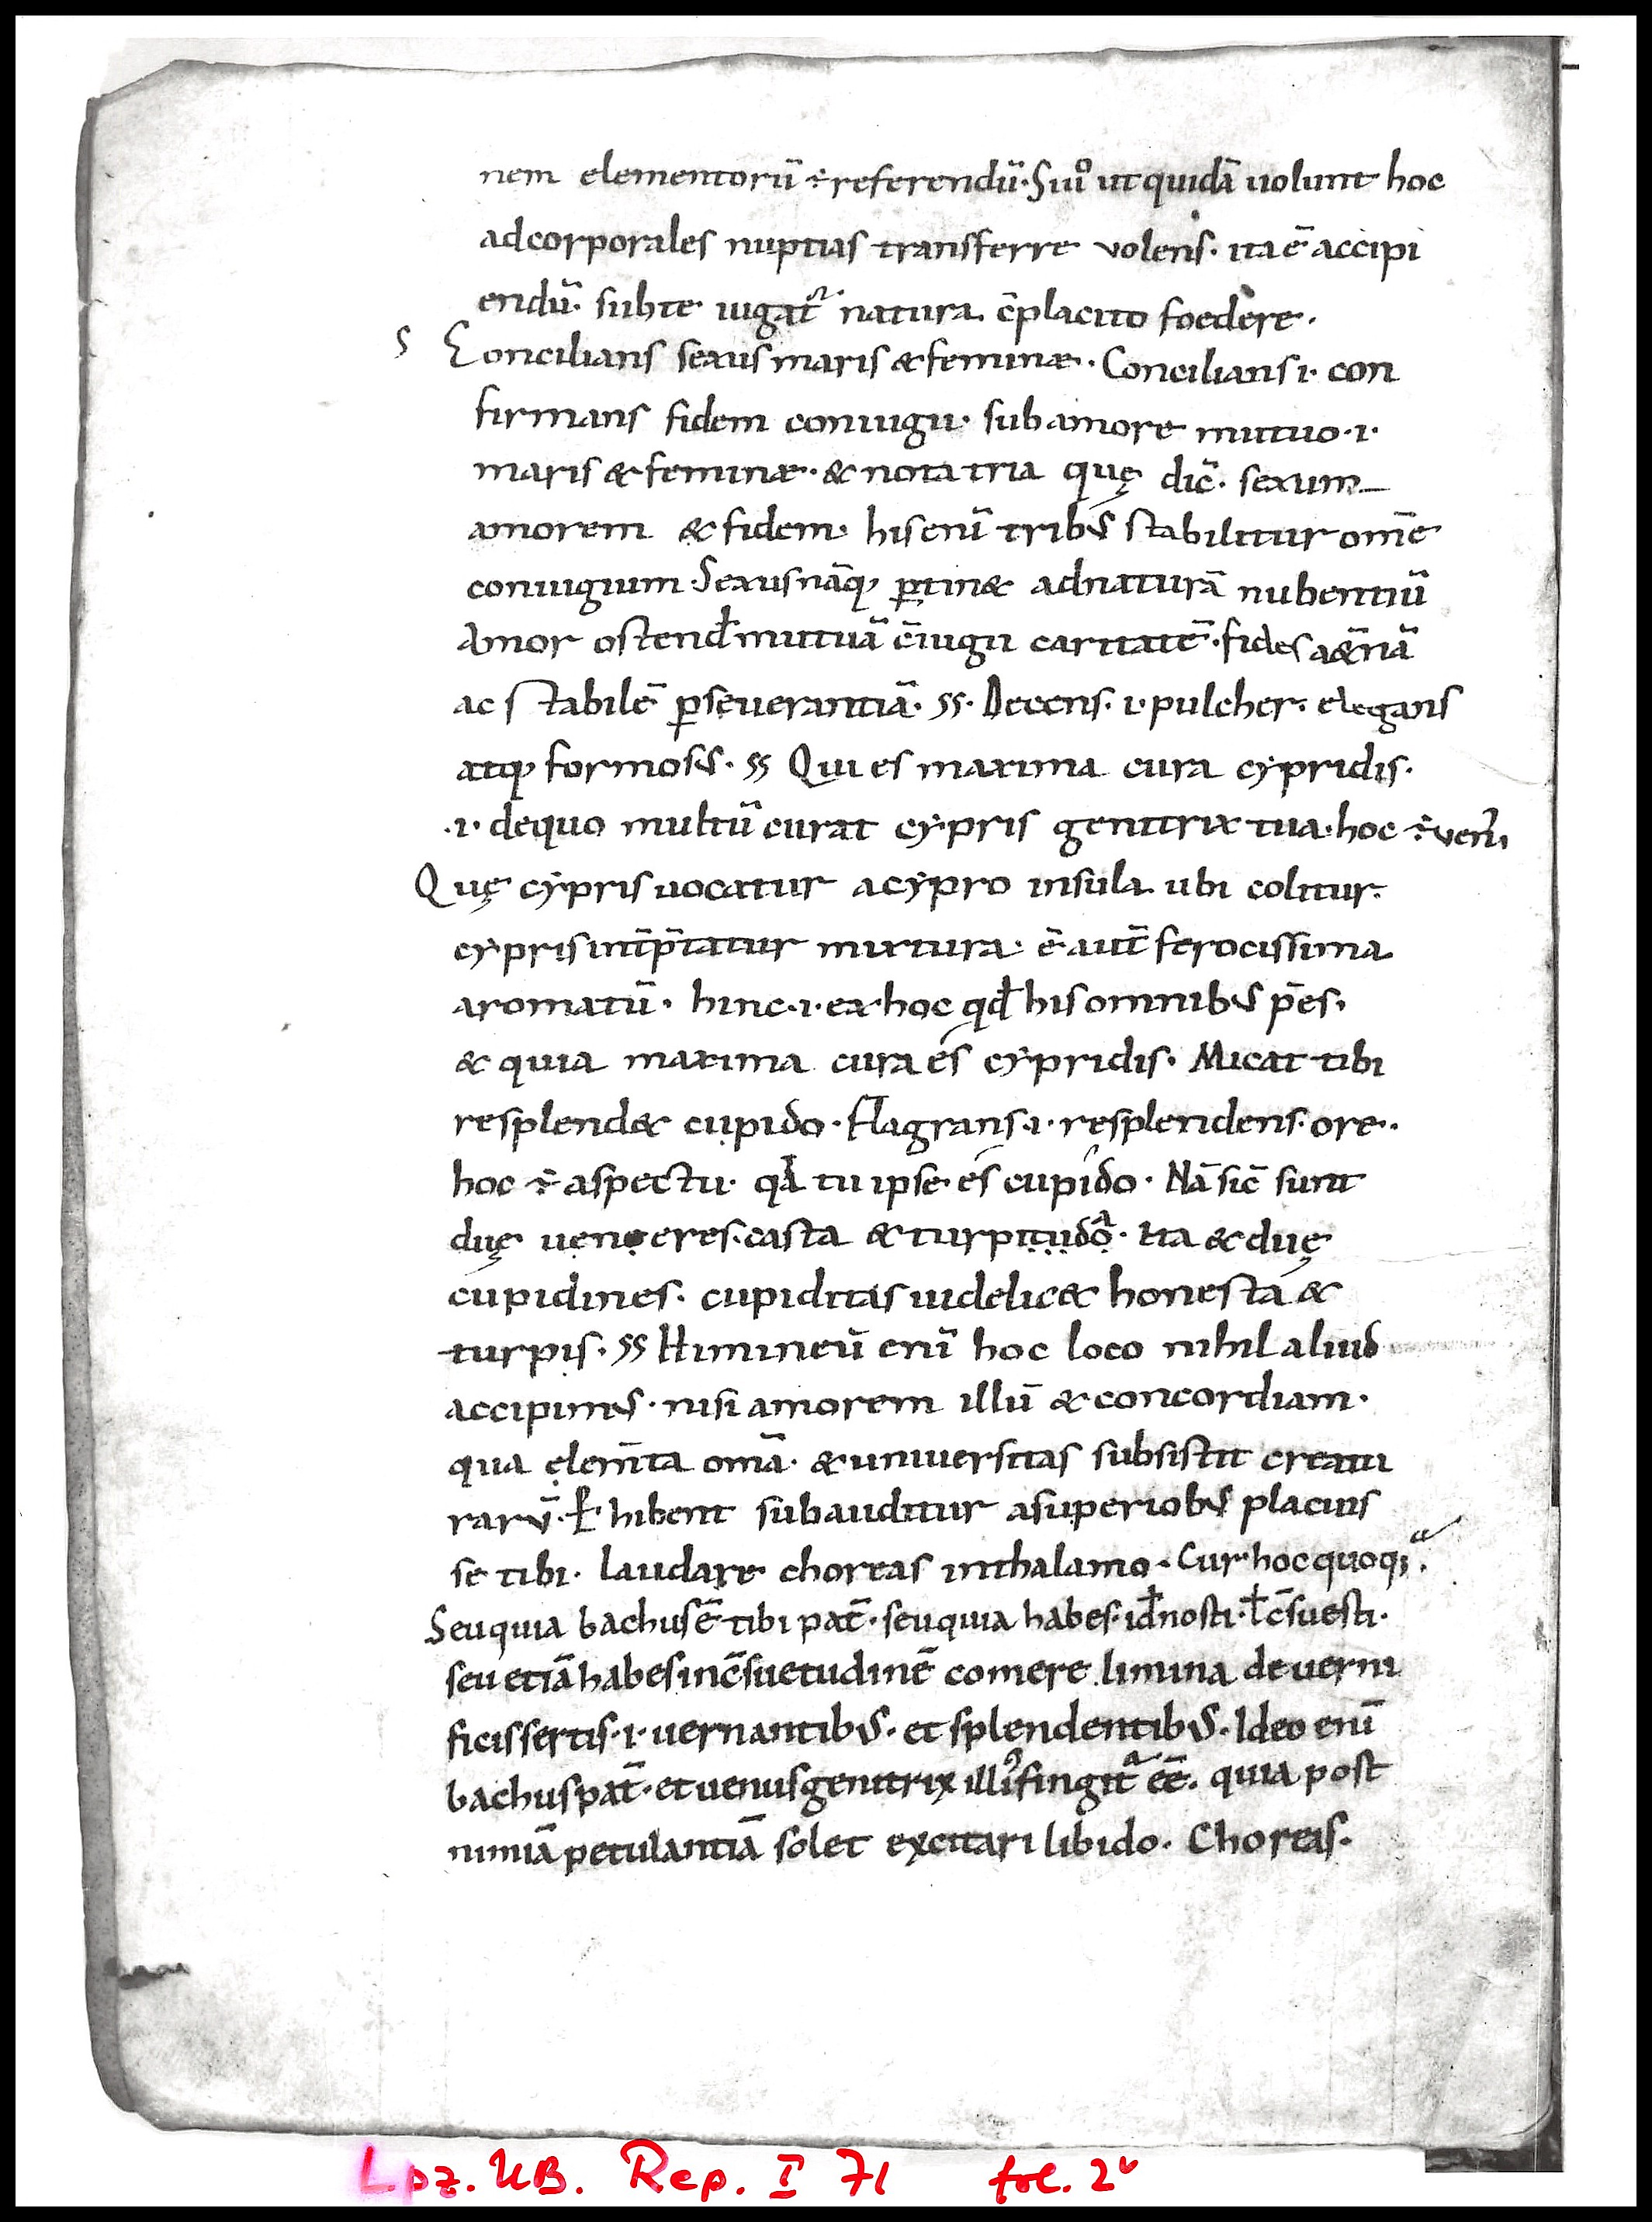 nem elementorũ ÷ referendũ· Si uº ut quidã uolunt hoc
ad corporales nuptias transferre volens· ita ẽ accipi
endũ· sub te iugat̃ natura c̄placito foedere·
S Concilians sexus maris & feminæ· Concilians ·i· con
firmans fidem coniugii· sub amore mutuo ·i·
maris & feminæ· & nota tria quę dic̄· sexum
amorem & fidem· his enĩ tribus stabilitur om̄e
coniugium· Sexus nãq; ꝑtin& ad naturã nubentiũ
Amor ostend̄ mutuã c̄iugii caritatẽ· fides a&̄nã
ac stabilẽ ꝑseuerantiã· SS· Decens ·i· pulcher· elegans
atq; formosus· SS Qui es maxima cura cẏpridis·
·i· de quo multũ curat cẏpris genitrix tua· hoc ÷ ven̄s
Quę cẏpris uocatur a cẏpro insula ubi colitur·
cẏpris int̄p̄tatur mirtura· ẽ aut̄ ferocissima
aromatũ· hinc ·i· ex hoc qd̄ his omnibus p̄es·
& quia maxima cura es cẏpridis· Micat tibi
resplend& cupido· Flagrans ·i· resplendens· ore·
hoc ÷ aspectu· qđ tu ipse es cupido· Nã sic̄ sunt
duę ueneres· casta & turpitudo· Ita & duę
cupidines· cupiditas uidelic& honesta &
turpis· SS Himineũ enĩ hoc loco nihil aliud
accipimus· nisi amorem illũ & concordiam·
qua elem̄ta om̄a· & uniuersitas subsistit creatu
rarũ· Perhibent subauditur a superiobus placuis
se tibi· laudare choreas in thalamo· Cur hoc quoq;
Seu quia bachus ẽ tibi pat̄· seu quia habes· id̄ nosti· ł c̄suesti·
seu etiã habes in c̄suetudinẽ comere limina de uerni
ficis sertis ·i· uernantibus· et splendentibus· Ideo enĩ
bachus pat̄· et uenus genitrix illi⁹ fingit̃ ẽẽ· quia post
nimiã petulantiã solet excitari libido· Choreas·
Lpz. UB. Rep. I 71 fol. 2v